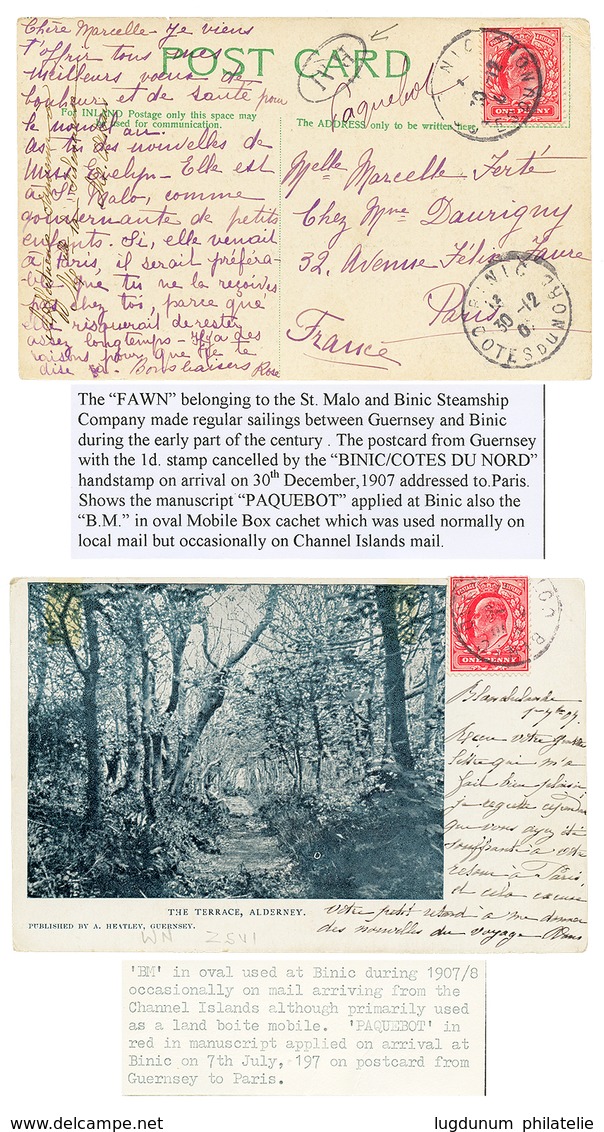 POST CARD
For INLAND Postage only this space may
be used for communication.
The ADDRESS only to be written here.
Chère Marcelle - Je viens
t'offrir tous mes
meilleurs vœux de
bonheur et de santé pour
le nouvel an.
as tu des nouvelles de
Miss Evelyn - Elle est
à St Malo, comme
gouvernante de petits
enfants. Si, elle venait
à Paris, il serait préféra-
ble que tu ne la reçoives
pas chez toi, parce qu'
elle risquerait de rester
assez longtemps - Il y a des
raisons pour que je te
dise ça - Bons baisers Rose
BM
Paquebot
ONE PENNY
Melle Marcelle Ferté
Chez Mme Daurigny
32, Avenue Félix Faure
Paris
France
BINIC
30 -12
COTES DU NORD
The “FAWN” belonging to the St. Malo and Binic Steamship
Company made regular sailings between Guernsey and Binic
during the early part of the century . The postcard from Guernsey
with the 1d. stamp cancelled by the “BINIC/COTES DU NORD”
handstamp on arrival on 30th December,1907 addressed to Paris.
Shows the manuscript “PAQUEBOT” applied at Binic also the
“B.M.” in oval Mobile Box cachet which was used normally on
local mail but occasionally on Channel Islands mail.
ONE PENNY
Reçu votre
lettre qui m'a
fait bien plaisir,
je regrette
que vous ayez été
souffrant à votre
retour à Paris,
et cela
votre petit à me donner
des nouvelles du voyage
THE TERRACE, ALDERNEY.
PUBLISHED BY A. HEATLEY, GUERNSEY.
'BM' in oval used at Binic during 1907/8
occasionally on mail arriving from the
Channel Islands although primarily used
as a land boite mobile. 'PAQUEBOT' in
red in manuscript applied on arrival at
Binic on 7th July, 197 on postcard from
Guernsey to Paris.
lugdunum philatelie